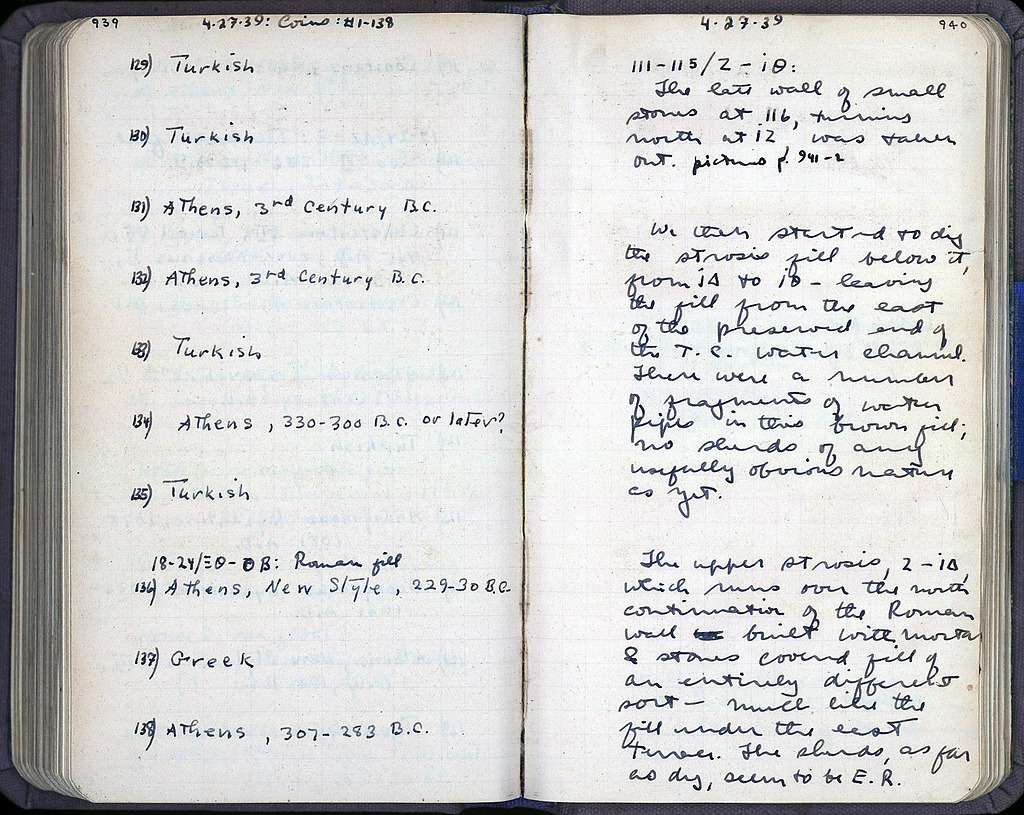 939
4-27-39: Coins: #1-138
129) Turkish
130) Turkish
131) Athens, 3rd Century B.C.
132) Athens, 3rd Century B.C.
133) Turkish
134) Athens, 330-300 B.C. or later?
135) Turkish
18-24/ΞΘ-ΟΒ: Roman fill
136) Athens, New Style, 229-30 B.C.
137) Greek
138) Athens, 307-283 B.C.
4-27-39
940
111-115/Z-ΙΘ:
The late wall of small
stones at 116, turning
north at 12, was taken
out. pictures p. 941-2
We then started to dig
the strosis fill below it,
from ΙΔ to ΙΘ - leaving
the fill from the east
of the preserved end of
the T.C. water channel.
There were a number
of fragments of water
pipes in this brown fill;
no sherds of any
usefully obvious nature
as yet.
The upper strosis, Z-ΙΔ,
which runs over the north
continuation of the Roman
wall built with mortar
& stones covered fill of
an entirely different
sort - much like the
fill under the east
terrace. The sherds, as far
as dug, seem to be E.R.